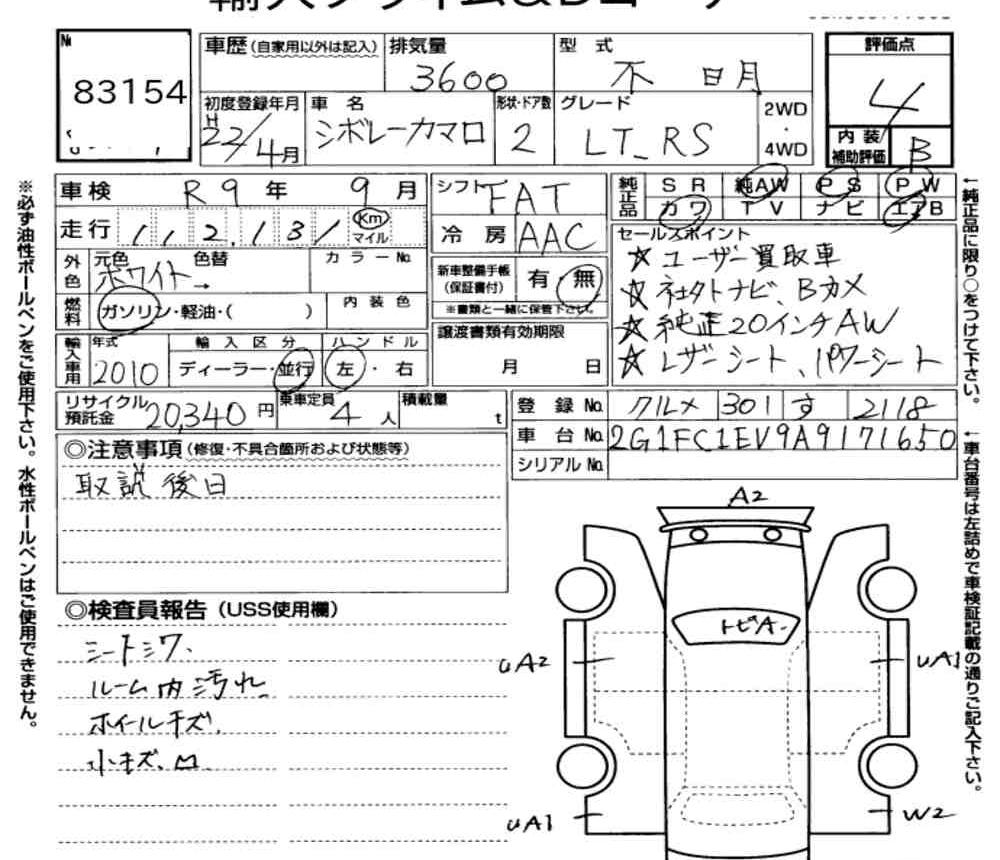 №
83154
車歴(自家用以外は記入) 排気量 3600 型式 不明
初度登録年月 H22/4月 車名 シボレーカマロ 形状・ドア数 2 グレード LT_RS 2WD・4WD
評価点 4
内装補助評価 B
車検 R9年 9月
走行 112,131 Km マイル
外色 元色 ホワイト→ 色替 カラーNo.
燃料 ガソリン・軽油・( ) 内装色
輸入車用 年式 2010 輸入区分 ディーラー・並行 ハンドル 左・右
シフト FAT
冷房 AAC
新車整備手帳(保証書付) 有 無
※書類と一緒に保管下さい。
譲渡書類有効期限
月 日
純正品 SR 純AW PS PW
カワ TV ナビ エアB
セールスポイント
☆ユーザー買取車
☆社外ナビ、Bカメ
☆純正20インチAW
☆レザーシート、パワーシート
リサイクル預託金 20,340円 乗車定員 4人 積載量 t
登録No. クルメ 301 す 2118
車台No. 2G1FC1EV9A9171650
シリアルNo.
◎注意事項(修復・不具合箇所および状態等)
取説後日
◎検査員報告(USS使用欄)
シートシワ、
ルーム内汚れ
ホイールキズ、
小キズ、凹
A2
トビA
UA2
UA1
UA1
W2
※必ず油性ボールペンをご使用下さい。水性ボールペンはご使用できません。
←純正品に限り○をつけて下さい。
←車台番号は左詰めで車検証記載の通りご記入下さい。